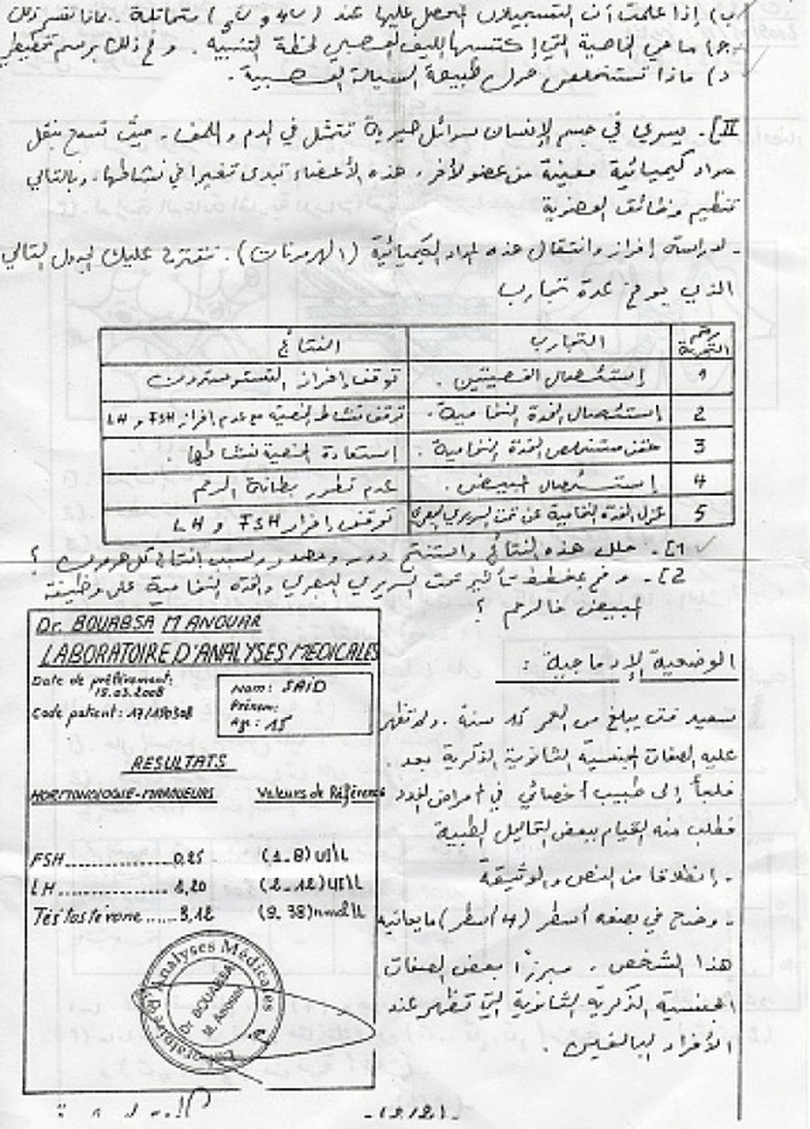 ب) إذا علمت أن التسجيلات المحصل عليها عند ( ) متماثلة. ماذا تفسر ذلك
ج) ما هي الخاصية التي إكتسبها الليف العصبي لحظة التنبيه. وضح ذلك برسم تخطيطي
د) ماذا تستخلص حول طبيعة السيالة العصبية.
II]. يسري في جسم الإنسان سوائل حيوية تتمثل في الدم و اللمف. حيث تسمح بنقل
مواد كيميائية معينة من عضو لآخر. هذه الأعضاء تبدي تغيرا في نشاطها. وبالتالي
تنظيم وظائف العضوية
- لدراسة إفراز وانتقال هذه المواد الكيميائية (الهرمونات). نقترح عليك الجدول التالي
الذي يوضح عدة تجارب
رقم التجربة التجارب النتائج
1 إستئصال الخصيتين. توقف إفراز التستوسترون
2 إستئصال الغدة النخامية. توقف نشاط الخصية مع عدم افراز FSH و LH
3 حقن مستخلص الغدة النخامية. إستعادة الخصية نشاطها.
4 إستئصال المبيض. عدم تطور بطانة الرحم
5 عزل الغدة النخامية عن تحت السريري البصري توقف إفراز FSH و LH
1]. حلل هذه النتائج واستنتج دور ومصدر وسبب إنتاج كل هرمون ؟
2]. وضح بمخطط تأثير تحت السريري البصري والغدة النخامية على وظيفة
المبيض فالرحم ؟
الوضعية الإدماجية :
سعيد فتى يبلغ من العمر 15 سنة. ولم تظهر
عليه الصفات الجنسية الثانوية الذكرية بعد.
فلجأ إلى طبيب أخصائي في أمراض الغدد
فطلب منه القيام ببعض التحاليل الطبية
- إنطلاقا من النص والوثيقة
- وضح في بضعة أسطر (4 أسطر) ما يعانيه
هذا الشخص. مبرزا بعض الصفات
الجنسية الذكرية الثانوية التي تظهر عند
الأفراد البالغين.
Dr. BOUABSA M ANOUAR
LABORATOIRE D'ANALYSES MEDICALES
Date de prélèvement:
18.03.2008
Code patient: 17/190308
Nom: SAID
Prénom:
Age: 15
RESULTATS
HORMONOLOGIE-MARQUEURS Valeurs de Référence
FSH..............0,25 (1_8) UI\L
LH..............1,20 (2_12) UI\L
Testosterone......3,12 (9_38) nmol\L
Laboratoire d'Analyses Médicales
D. BOUABSA
M. Anouar
-(2/2)-